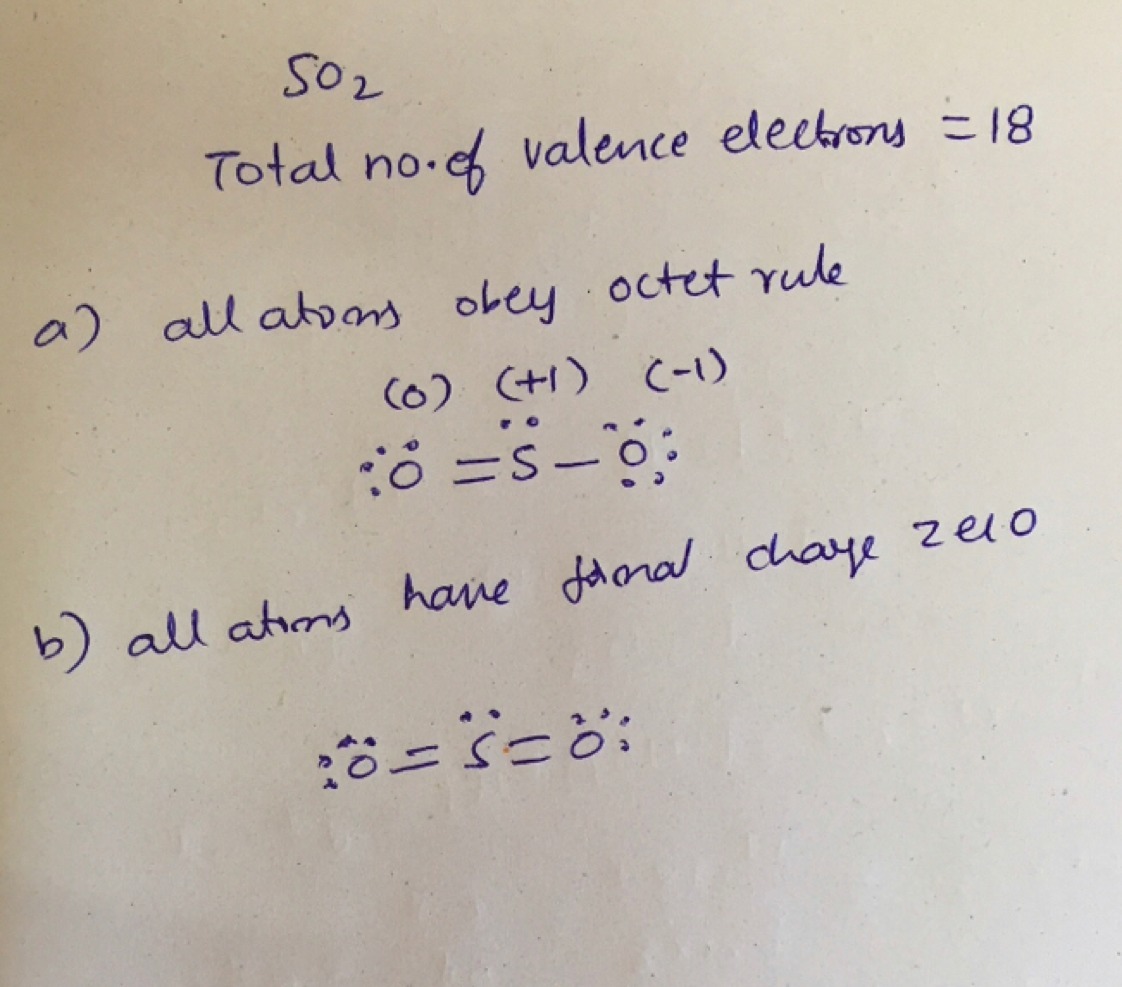 SO₂
Total no. of valence electrons = 18
a) all atoms obey octet rule
(0) (+1) (-1)
:Ö = S̈ — Ö:
b) all atoms have formal charge zero
:Ö = S̈ = Ö: